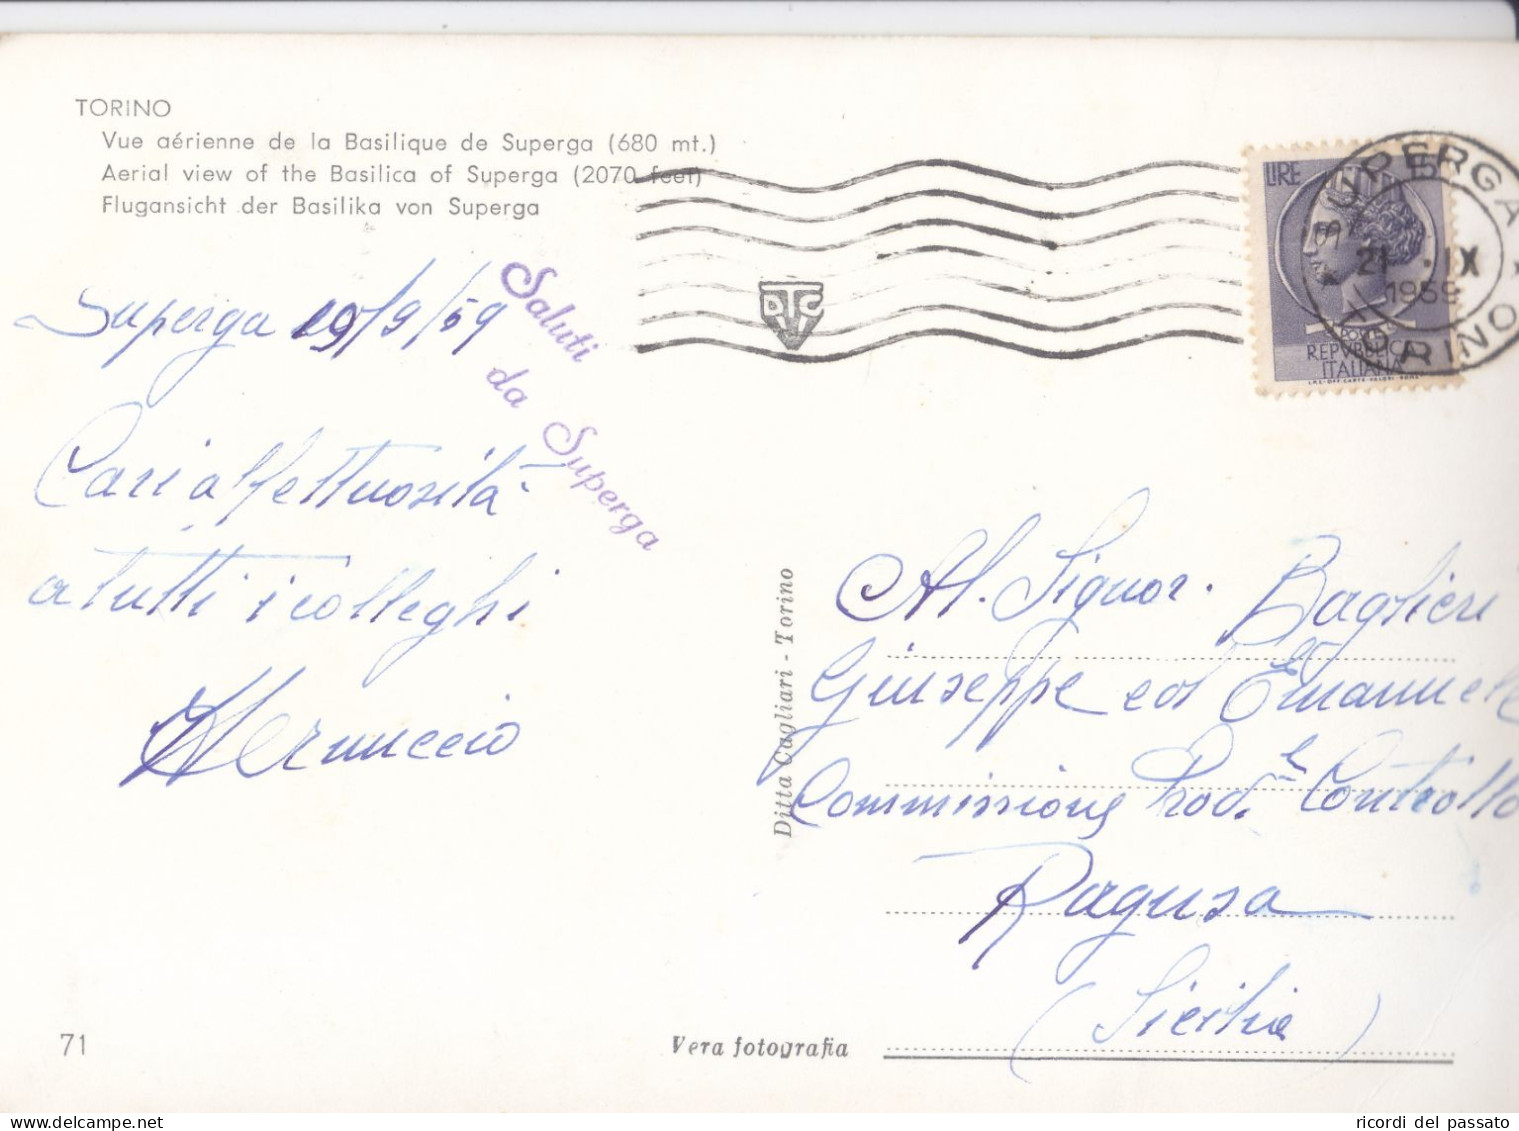 TORINO
Vue aérienne de la Basilique de Superga (680 mt.)
Aerial view of the Basilica of Superga (2070 feet)
Flugansicht der Basilika von Superga
Superga 19/9/59
Saluti
da
Superga
Cari affettuosità
a tutti i colleghi
SUPERGA
21 . IX
1959
TORINO
LIRE
POSTE
REPVBBLICA
ITALIANA
Ditta Cagliari - Torino
Al. Signor. Baglieri
Giuseppe ed Emanuele
Commissione Prod. e Controllo
Ragusa
(Sicilia)
71
Vera fotografia
ricordi del passato